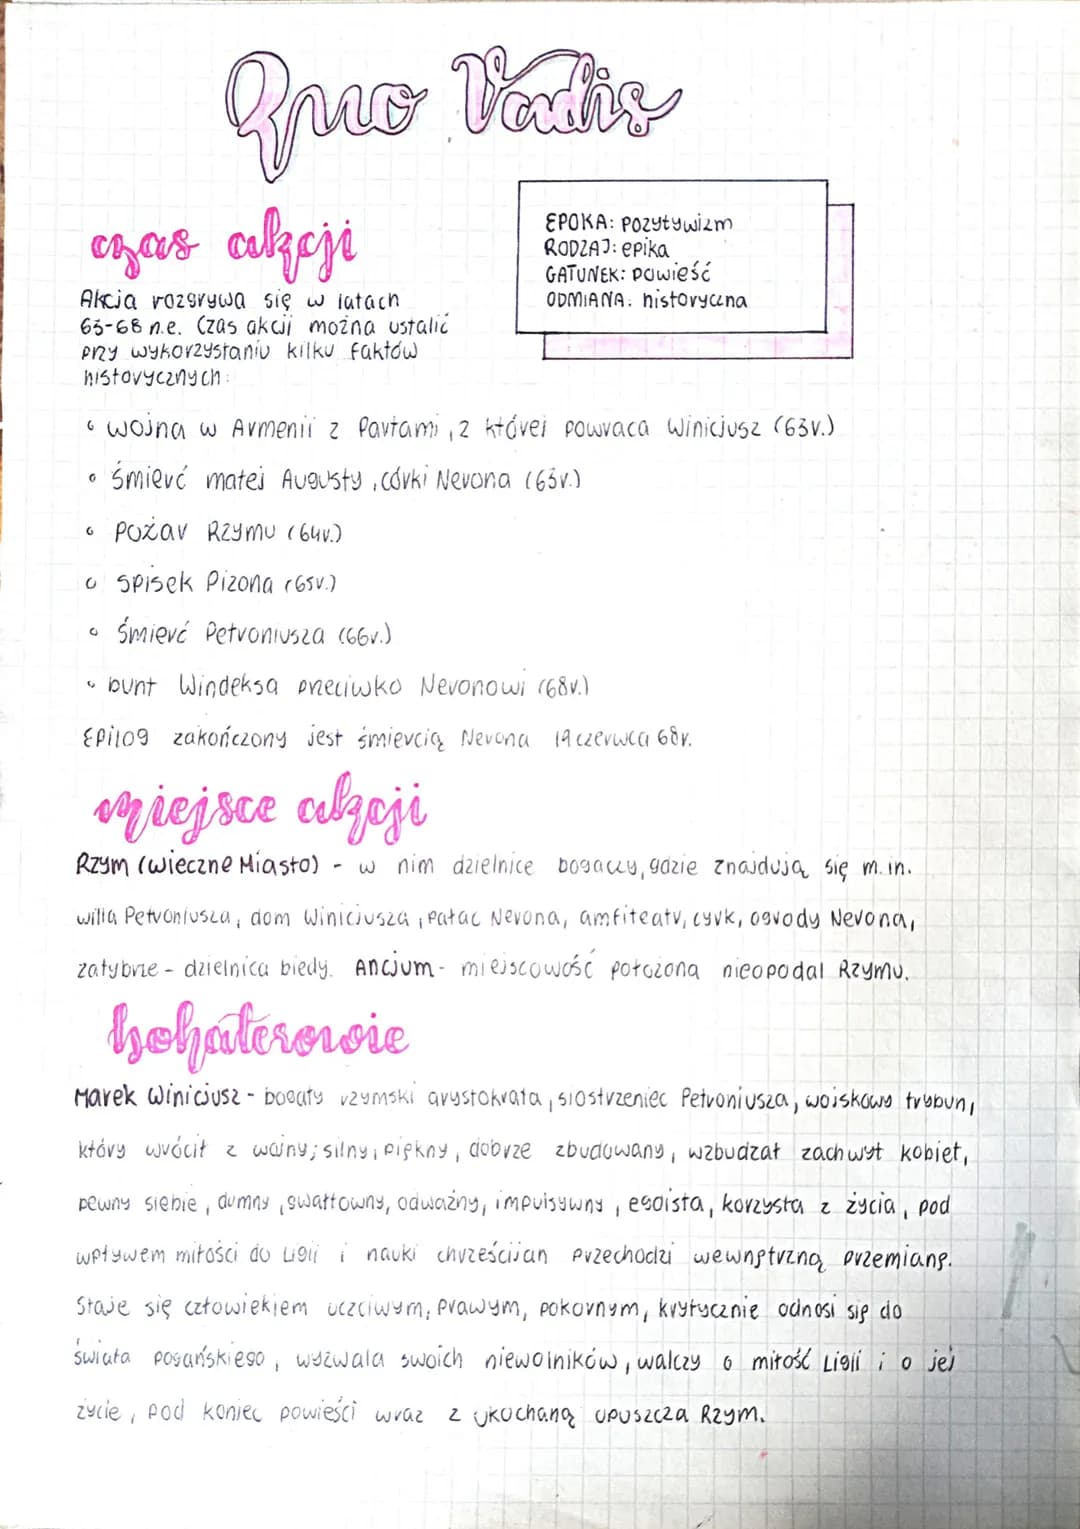 Quo Vadis
EPOKA: pozytywizm
RODZAJ: epika
GATUNEK: powieść
ODMIANA: historyczna
czas akcji
Akcja rozgrywa się w latach
63-68 n.e. Czas akcji można ustalić
przy wykorzystaniu kilku faktów
historycznych:
• wojna w Armenii z Partami, z której powraca Winicjusz (63r.)
• śmierć małej Augusty, córki Nerona (63r.)
• pożar Rzymu (64r.)
• spisek Pizona (65r.)
• śmierć Petroniusza (66r.)
• bunt Windeksa przeciwko Neronowi (68r.)
Epilog zakończony jest śmiercią Nerona 19 czerwca 68r.
miejsce akcji
Rzym (wieczne Miasto) - w nim dzielnice bogaczy, gdzie znajdują się m.in.
willa Petroniusza, dom Winicjusza, pałac Nerona, amfiteatr, cyrk, ogrody Nerona,
zatybrze - dzielnica biedy. Ancjum - miejscowość położona nieopodal Rzymu.
bohaterowie
Marek Winicjusz - bogaty rzymski arystokrata, siostrzeniec Petroniusza, wojskowy trybun,
który wrócił z wojny; silny, piękny, dobrze zbudowany, wzbudzał zachwyt kobiet,
pewny siebie, dumny, gwałtowny, odważny, impulsywny, egoista, korzysta z życia, pod
wpływem miłości do Ligii i nauki chrześcijan przechodzi wewnętrzną przemianę.
Staje się człowiekiem uczciwym, prawym, pokornym, krytycznie odnosi się do
świata pogańskiego, wyzwala swoich niewolników, walczy o miłość Ligii i o jej
życie, pod koniec powieści wraz z ukochaną opuszcza Rzym.